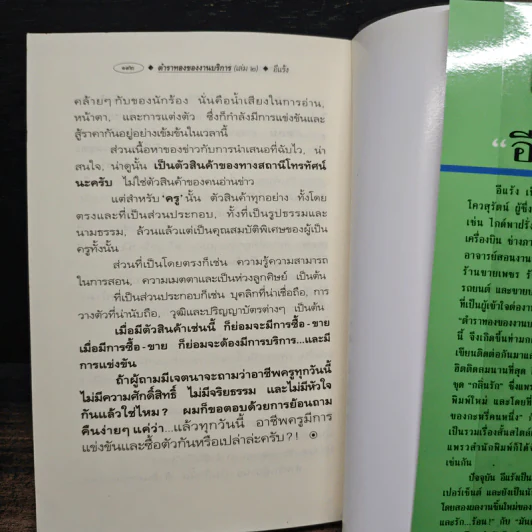 ◆ ตำราทองของงานบริการ (เล่ม ๒) ◆ อีแร้ง
คล้ายๆ กับของนักร้อง นั่นคือน้ำเสียงในการอ่าน,
หน้าตา, และการแต่งตัว ซึ่งก็กำลังมีการแข่งขันและ
สู้ราคากันอยู่อย่างเข้มข้นในเวลานี้
ส่วนเนื้อหาของข่าวกับการนำเสนอที่ฉับไว, น่า
สนใจ, น่าดูนั้น เป็นตัวสินค้าของทางสถานีโทรทัศน์
นะครับ ไม่ใช่ตัวสินค้าของคนอ่านข่าว
แต่สำหรับ ‘ครู’ นั้น ตัวสินค้าทุกอย่าง ทั้งโดย
ตรงและที่เป็นส่วนประกอบ, ทั้งที่เป็นรูปธรรมและ
นามธรรม, ล้วนแล้วแต่เป็นคุณสมบัติพิเศษของผู้เป็น
ครูทั้งนั้น
ส่วนที่เป็นโดยตรงก็เช่น ความรู้ความสามารถ
ในการสอน, ความเมตตาและเป็นห่วงลูกศิษย์ เป็นต้น
ที่เป็นส่วนประกอบก็เช่น บุคลิกที่น่าเชื่อถือ, การ
วางตัวที่น่านับถือ, วุฒิและปริญญาบัตรต่างๆ เป็นต้น
เมื่อมีตัวสินค้าเช่นนี้ ก็ย่อมจะมีการซื้อ-ขาย
เมื่อมีการซื้อ-ขาย ก็ย่อมจะต้องมีการบริการ...และมี
การแข่งขัน
ถ้าผู้ถามมีเจตนาจะถามว่าอาชีพครูทุกวันนี้
ไม่มีความศักดิ์สิทธิ์ ไม่มีจริยธรรม และไม่มีหัวใจ
กันแล้วใช่ไหม? ผมก็ขอตอบด้วยการย้อนถาม
คืนง่ายๆ แค่ว่า...แล้วทุกวันนี้ อาชีพครูมีการ
แข่งขันและซื้อตัวกันหรือเปล่าล่ะครับ?!
“อี
อีแร้ง เ
โควสุรัตน์ ผู้ซึ่
เช่น ไกด์พาฝรั่
เครื่องบิน ช่างภา
อาจารย์สอนงาน
ร้านขายเพชร ร้
รถยนต์ และขายป
ที่เป็นผู้เข้าใจต่องา
“ตำราทองของงาน
นี้ จึงเกิดขึ้นท่ามก
เขียนติดต่อกันมาเ
ฮิตติดตามนานที่สุด
ชุด “กลิ่นรัก” ซึ่งแพ
พิมพ์ใหม่ และโดยที่
ของกะหรี่คนหนึ่ง”
เป็นรวมเรื่องสั้นสไตล์
แพรวสำนักพิมพ์ก็ได้จ
เช่นกัน
ปัจจุบัน อีแร้งเป็น
เปอร์เซ็นต์ และยังเป็นนั
โดยสองผลงานชิ้นใหม่ของ
และรัก...ร้อน!” กับ “มัน